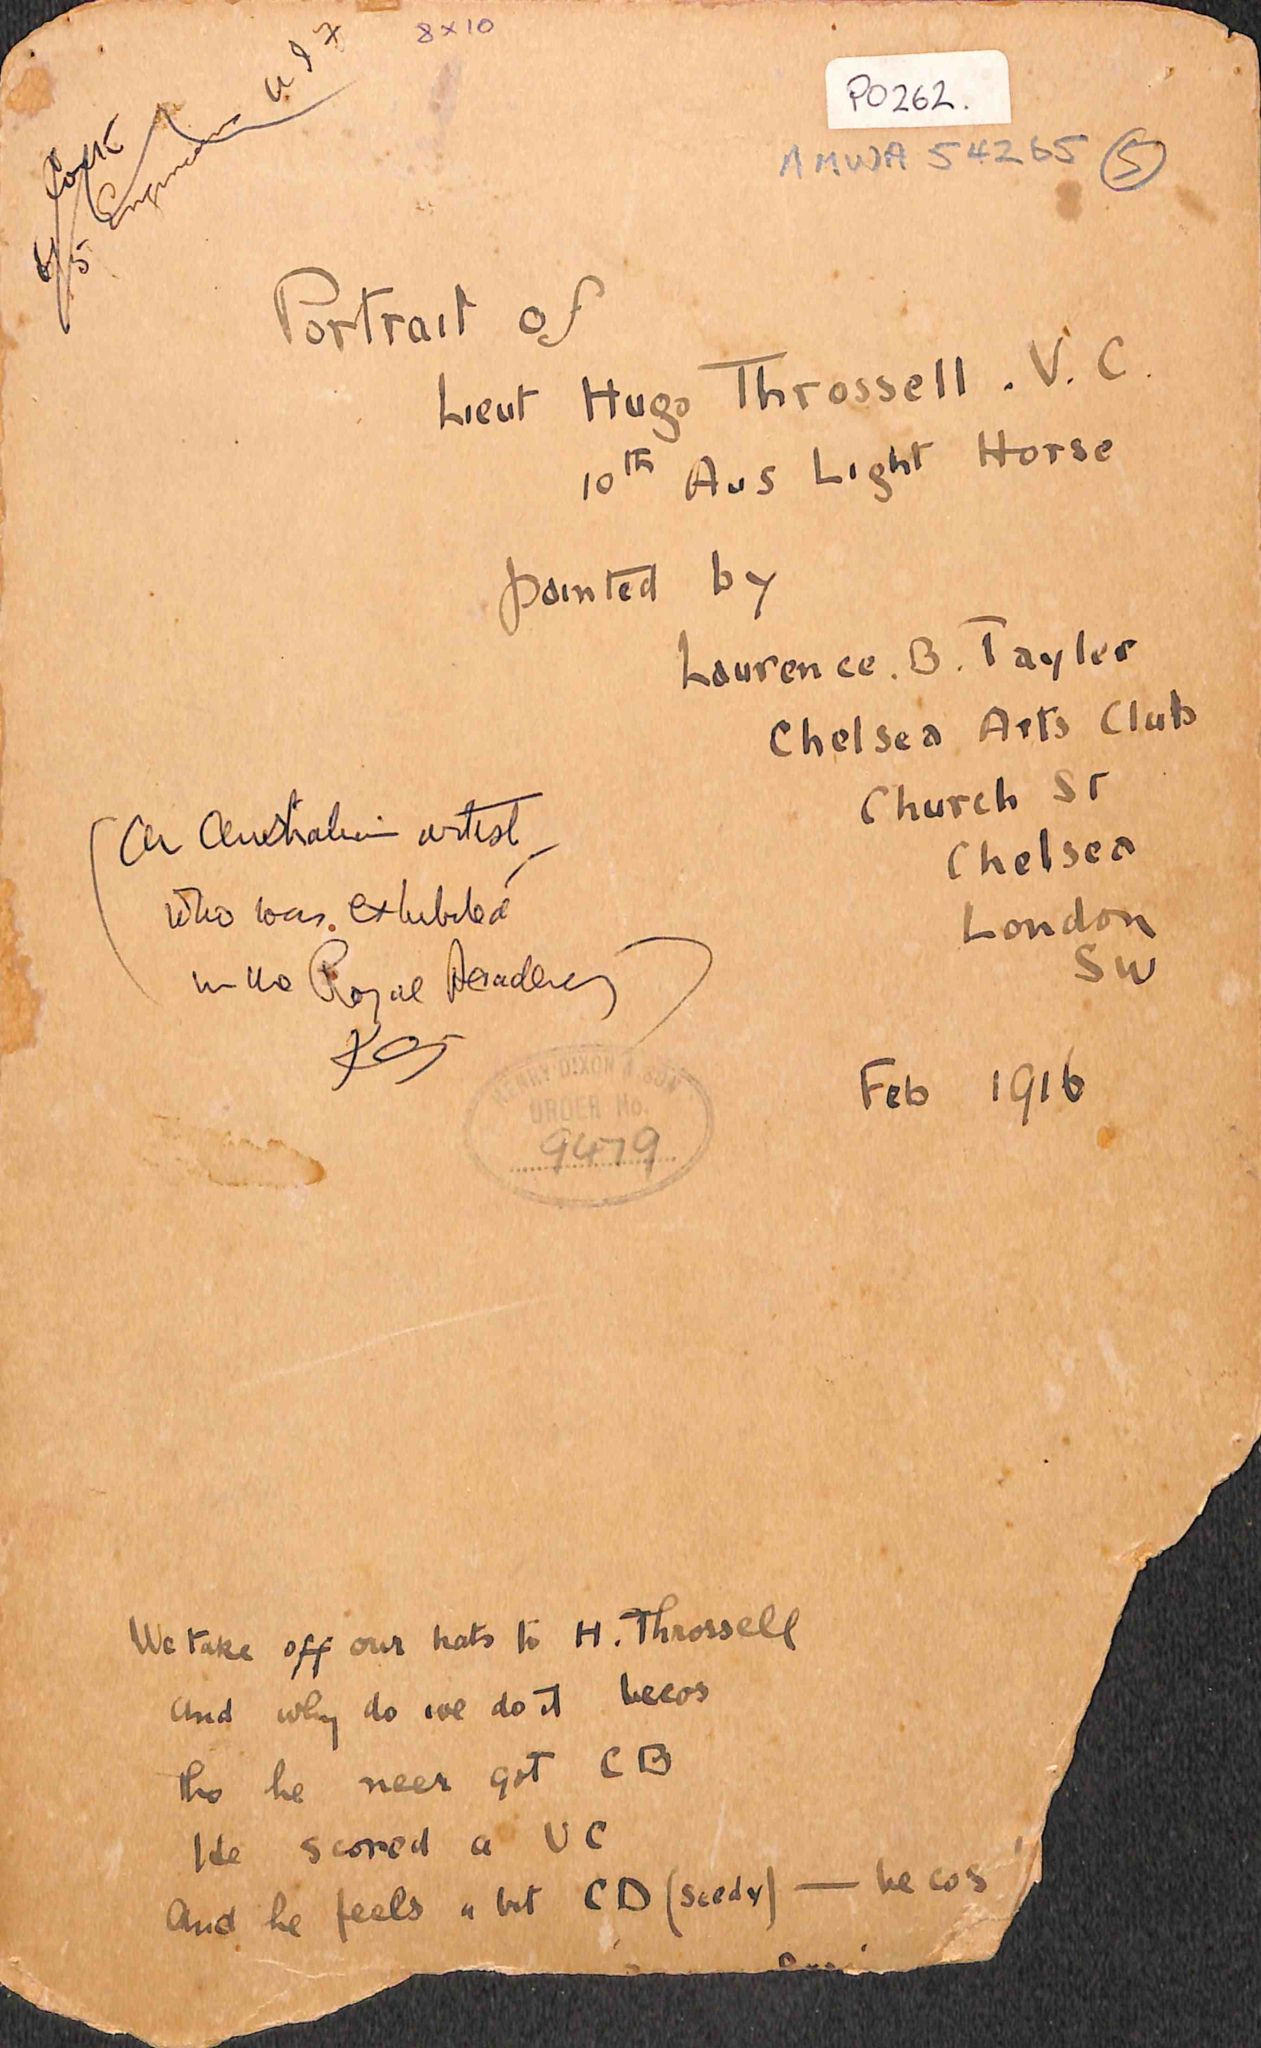 8x10
PO262.
AMWA 54265 (5)
Portrait of
Lieut Hugo Throssell. V. C.
10th Aus Light Horse
painted by
Laurence. B. Tayler
Chelsea Arts Club
Church St
Chelsea
London
SW
(An Australian artist
who was exhibited
in the Royal Academy)
Feb 1916
HENRY DIXON & SON
ORDER No.
9479
We take off our hats to H. Throssell
And why do we do it becos
tho he neer got CB
He scored a VC
And he feels a bit CD (seedy) — becos